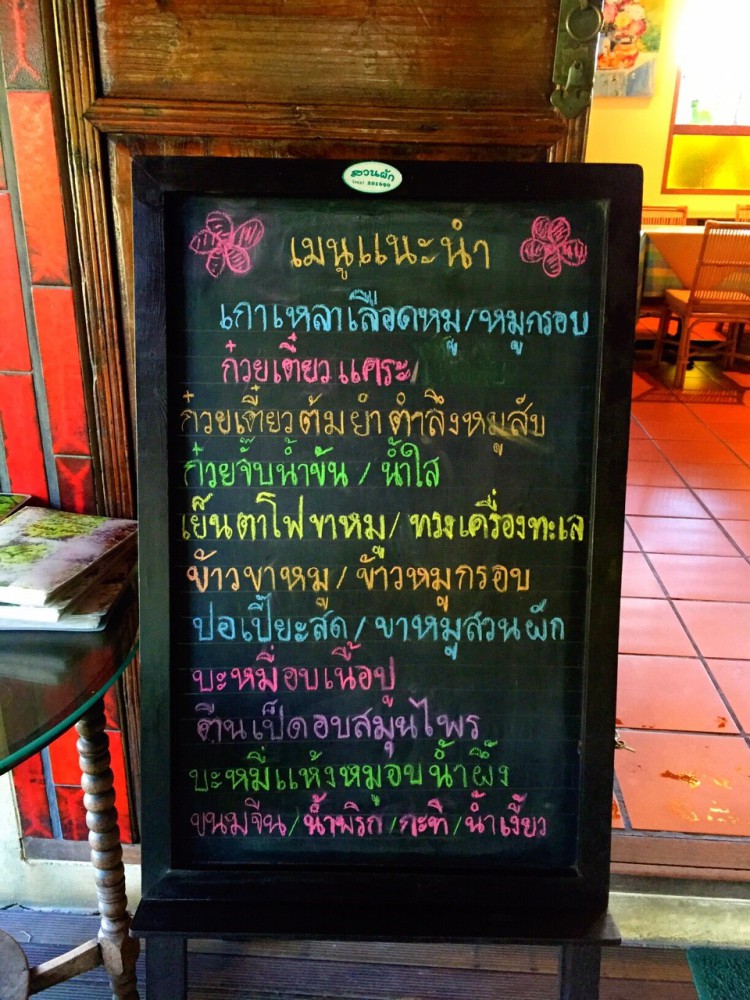 สวนผัก
เมนูแนะนำ
เกาเหลาเลือดหมู/หมูกรอบ
ก๋วยเตี๋ยวแคระ/
ก๋วยเตี๋ยวต้มยำตำลึงหมูสับ
ก๋วยจั๊บน้ำข้น / น้ำใส
เย็นตาโฟขาหมู/ ทรงเครื่องทะเล
ข้าวขาหมู/ ข้าวหมูกรอบ
ปอเปี๊ยะสด/ ขาหมูสวนผัก
บะหมี่อบเนื้อปู
ตีนเป็ดอบสมุนไพร
บะหมี่แห้งหมูอบน้ำผึ้ง
ขนมจีน/น้ำพริก/กะทิ/น้ำเงี้ยว